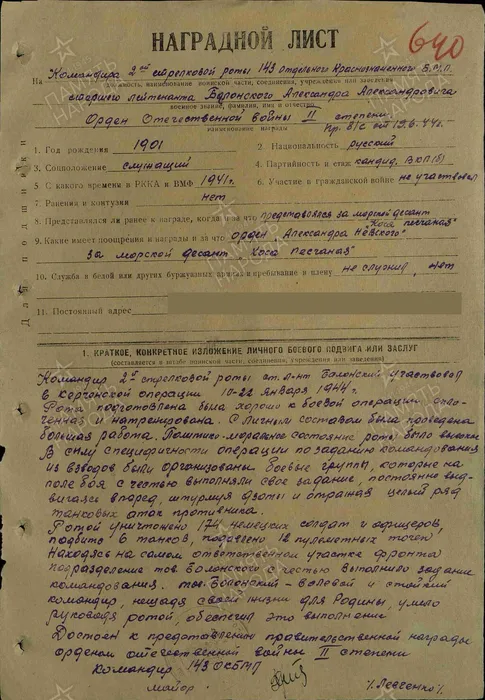 640
НАГРАДНОЙ ЛИСТ
На Командира 2ой стрелковой роты 143 отдельного Краснознаменного Б.М.П.
должность, наименование воинской части, соединения, учреждения или заведения
старшего лейтенанта Болонского Александра Александровича
военное звание, фамилия, имя и отчество
Орден Отечественной войны II степени.
наименование награды
Пр. 81/с от 19.6.44г.
1. Год рождения 1901
2. Национальность русский
3. Соцположение служащий
4. Партийность и стаж кандид. ВКП(б)
5. С какого времени в РККА и ВМФ 1941г.
6. Участие в гражданской войне не участвовал
7. Ранения и контузии нет
8. Представлялся ли ранее к награде, когда и за что представлялся за морской десант
"Коса песчаная"
9. Какие имеет поощрения и награды и за что орден "Александра Невского"
за морской десант "Коса песчаная"
10. Служба в белой или других буржуазных армиях и пребывание в плену не служил, нет
11. Постоянный адрес
1. КРАТКОЕ, КОНКРЕТНОЕ ИЗЛОЖЕНИЕ ЛИЧНОГО БОЕВОГО ПОДВИГА ИЛИ ЗАСЛУГ
(составляется в штабе воинской части, соединения, учреждения или заведения)
Командир 2ой стрелковой роты ст. л-нт Болонский участвовал
в керченской операции 10-22 января 1944г.
Рота подготовлена была хорошо к боевой операции
натренирована. С личным составом была проведена
большая работа. Политико-моральное состояние роты было высоким
В силу специфичности операции по заданию командования
из взводов были организованы боевые группы, которые на
поле боя с честью выполняли свое задание, постоянно выд-
вигаясь вперед, штурмуя дзоты и отражая целый ряд
танковых атак противника.
Ротой уничтожено 174 немецких солдат и офицеров,
подбито 6 танков, подавлено 12 пулеметных точек
Находясь на самом ответственном участке фронта
подразделение тов. Болонского с честью выполнило задание
командования. тов. Болонский - волевой и стойкий
командир, нещадя своей жизни для Родины, умело
руководя ротой, обеспечил это выполнение
Достоин к представлению правительственной награды
орденом отечественной войны II степени
Командир 143 ОКБМП
майор
/Левченко/